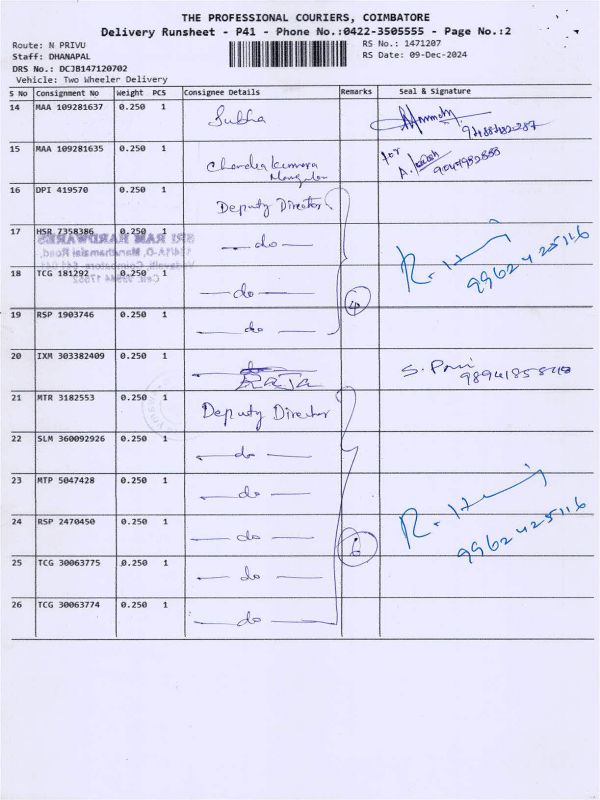 THE PROFESSIONAL COURIERS, COIMBATORE
Delivery Runsheet - P41 - Phone No.:0422-3505555 - Page No.:2
Route: N PRIVU RS No.: 1471207
Staff: DHANAPAL RS Date: 09-Dec-2024
DRS No.: DCJB147120702
Vehicle: Two Wheeler Delivery
S No Consignment No Weight PCS Consignee Details Remarks Seal & Signature
14 MAA 109281637 0.250 1 Subha
15 MAA 109281635 0.250 1 Chandra kumara for
16 DPI 419570 0.250 1 Deputy Director
17 HSR 7358386 0.250 1 — do — 9962425116
SRI RAM HARDWARES
18 TCG 181292 0.250 1 — do — 4
19 RSP 1903746 0.250 1 — do —
20 IXM 303382409 0.250 1 RaJa
21 MTR 3182553 0.250 1 Deputy Director
22 SLM 360092926 0.250 1 — do —
23 MTP 5047428 0.250 1 — do —
24 RSP 2470450 0.250 1 — do — 6 9962425116
25 TCG 30063775 0.250 1 — do —
26 TCG 30063774 0.250 1 — do —